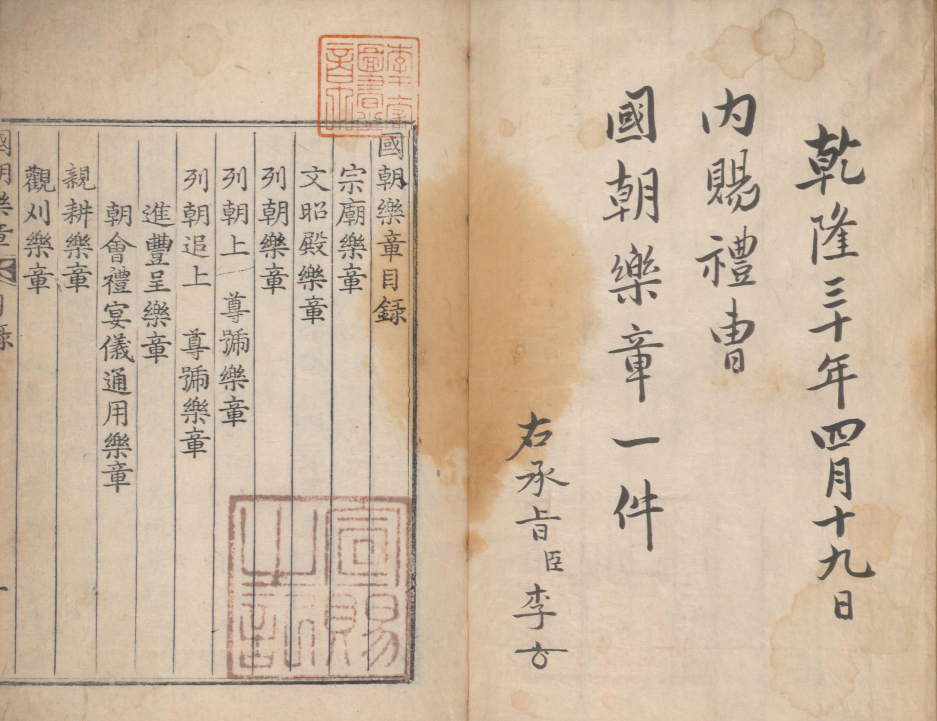 乾隆三十年四月十九日
內賜禮曹
國朝樂章一件
右承旨臣李
國朝樂章目錄
宗廟樂章
文昭殿樂章
列朝樂章
列朝上 尊號樂章
列朝追上 尊號樂章
進豐呈樂章
朝會禮宴儀通用樂章
親耕樂章
觀刈樂章
國朝樂章 目錄 一
宣賜之記